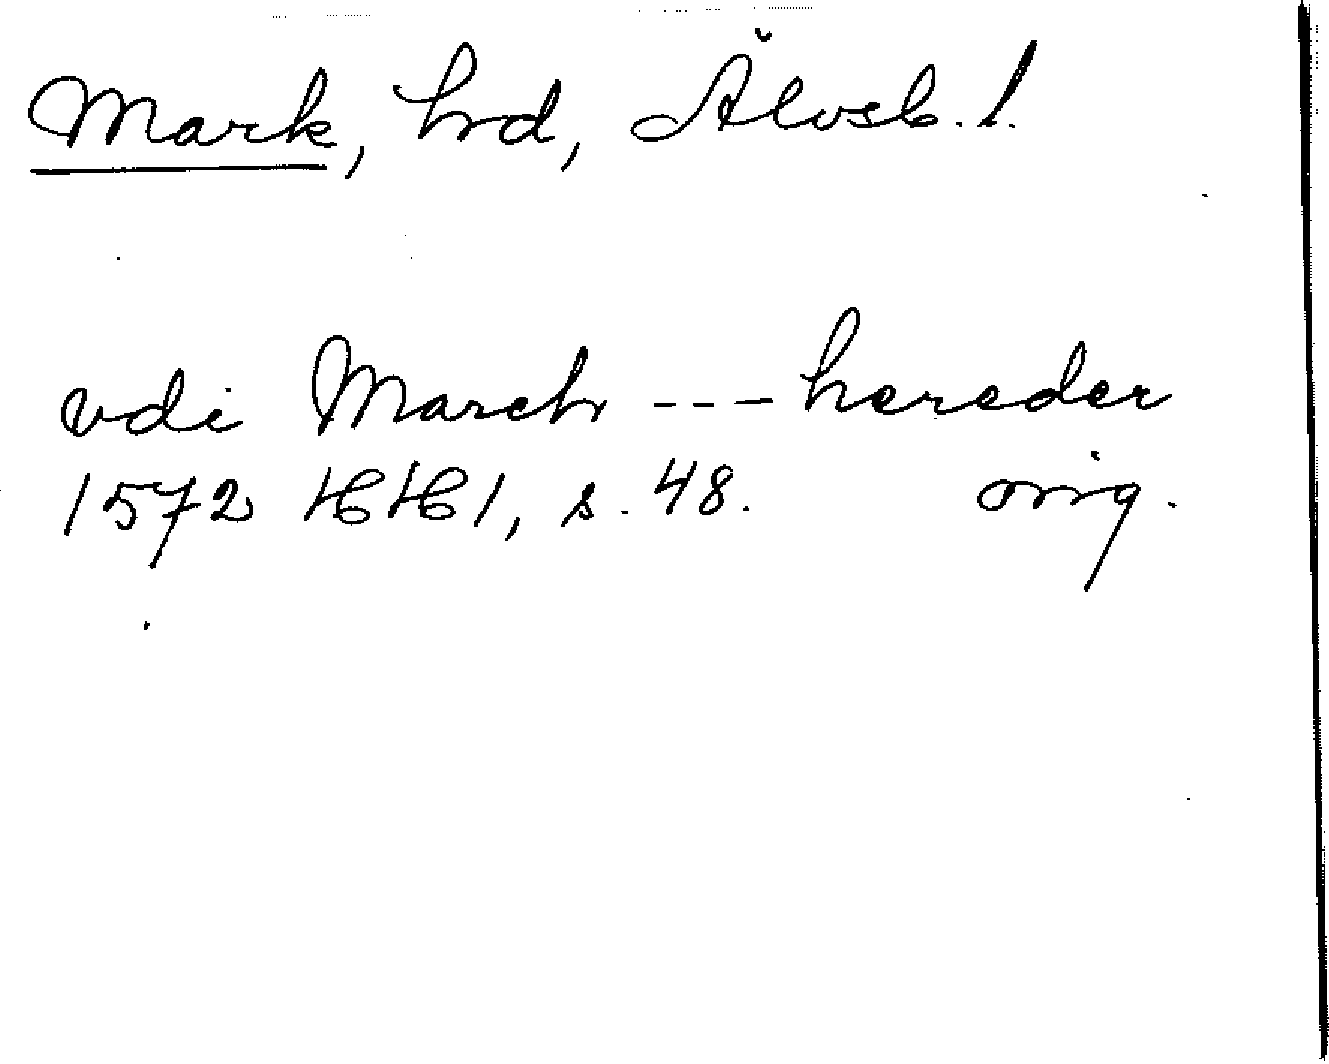 Mark, hrd, Älvsb. l.
vdi March --- hereder
1572 HH 1, s. 48. orig.